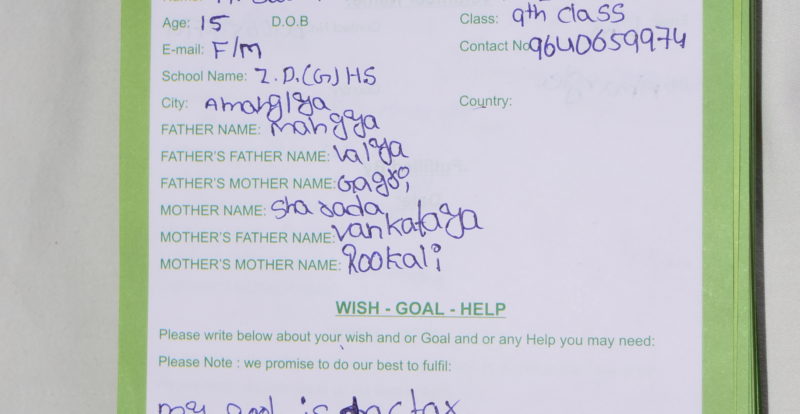 Age: 15 D.O.B Class: 9th class
E-mail: F/M Contact No 9640659974
School Name: Z.P.(G)HS
City: Amangiya Country:
FATHER NAME: mangya
FATHER'S FATHER NAME: Valya
FATHER'S MOTHER NAME:
MOTHER NAME: Sharada
MOTHER'S FATHER NAME: Vankataya
MOTHER'S MOTHER NAME: Rookali
WISH - GOAL - HELP
Please write below about your wish and or Goal and or any Help you may need:
Please Note : we promise to do our best to fulfil:
my goal is doctar